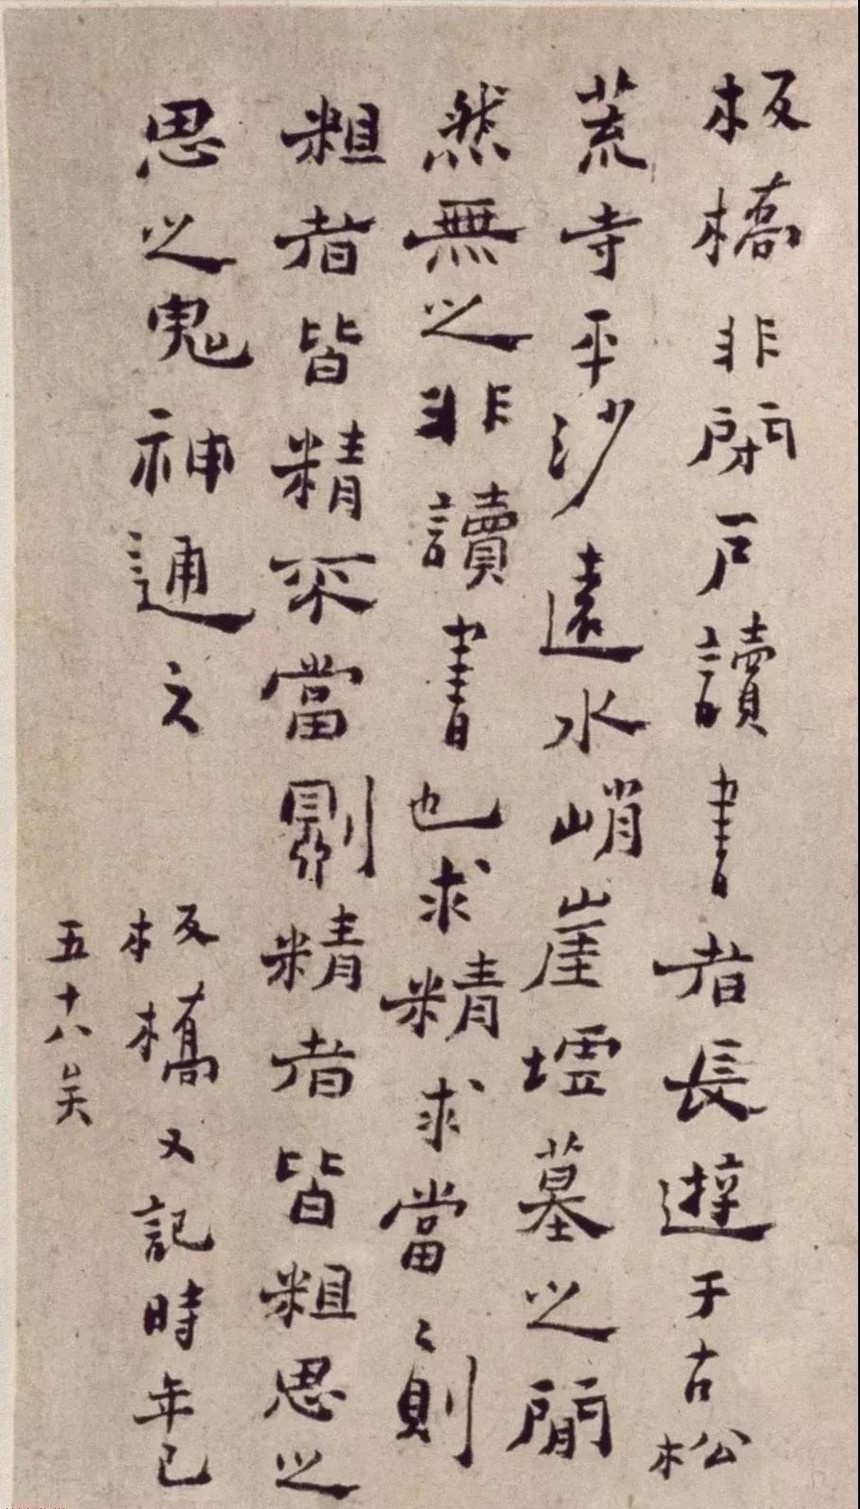 板橋非閉戶讀書者長遊于古松
荒寺平沙遠水峭崖墟墓之間
然無之非讀書也求精求當〻則
粗者皆精不當則精者皆粗思之
思之鬼神通之
板橋又記時年已
五十八矣